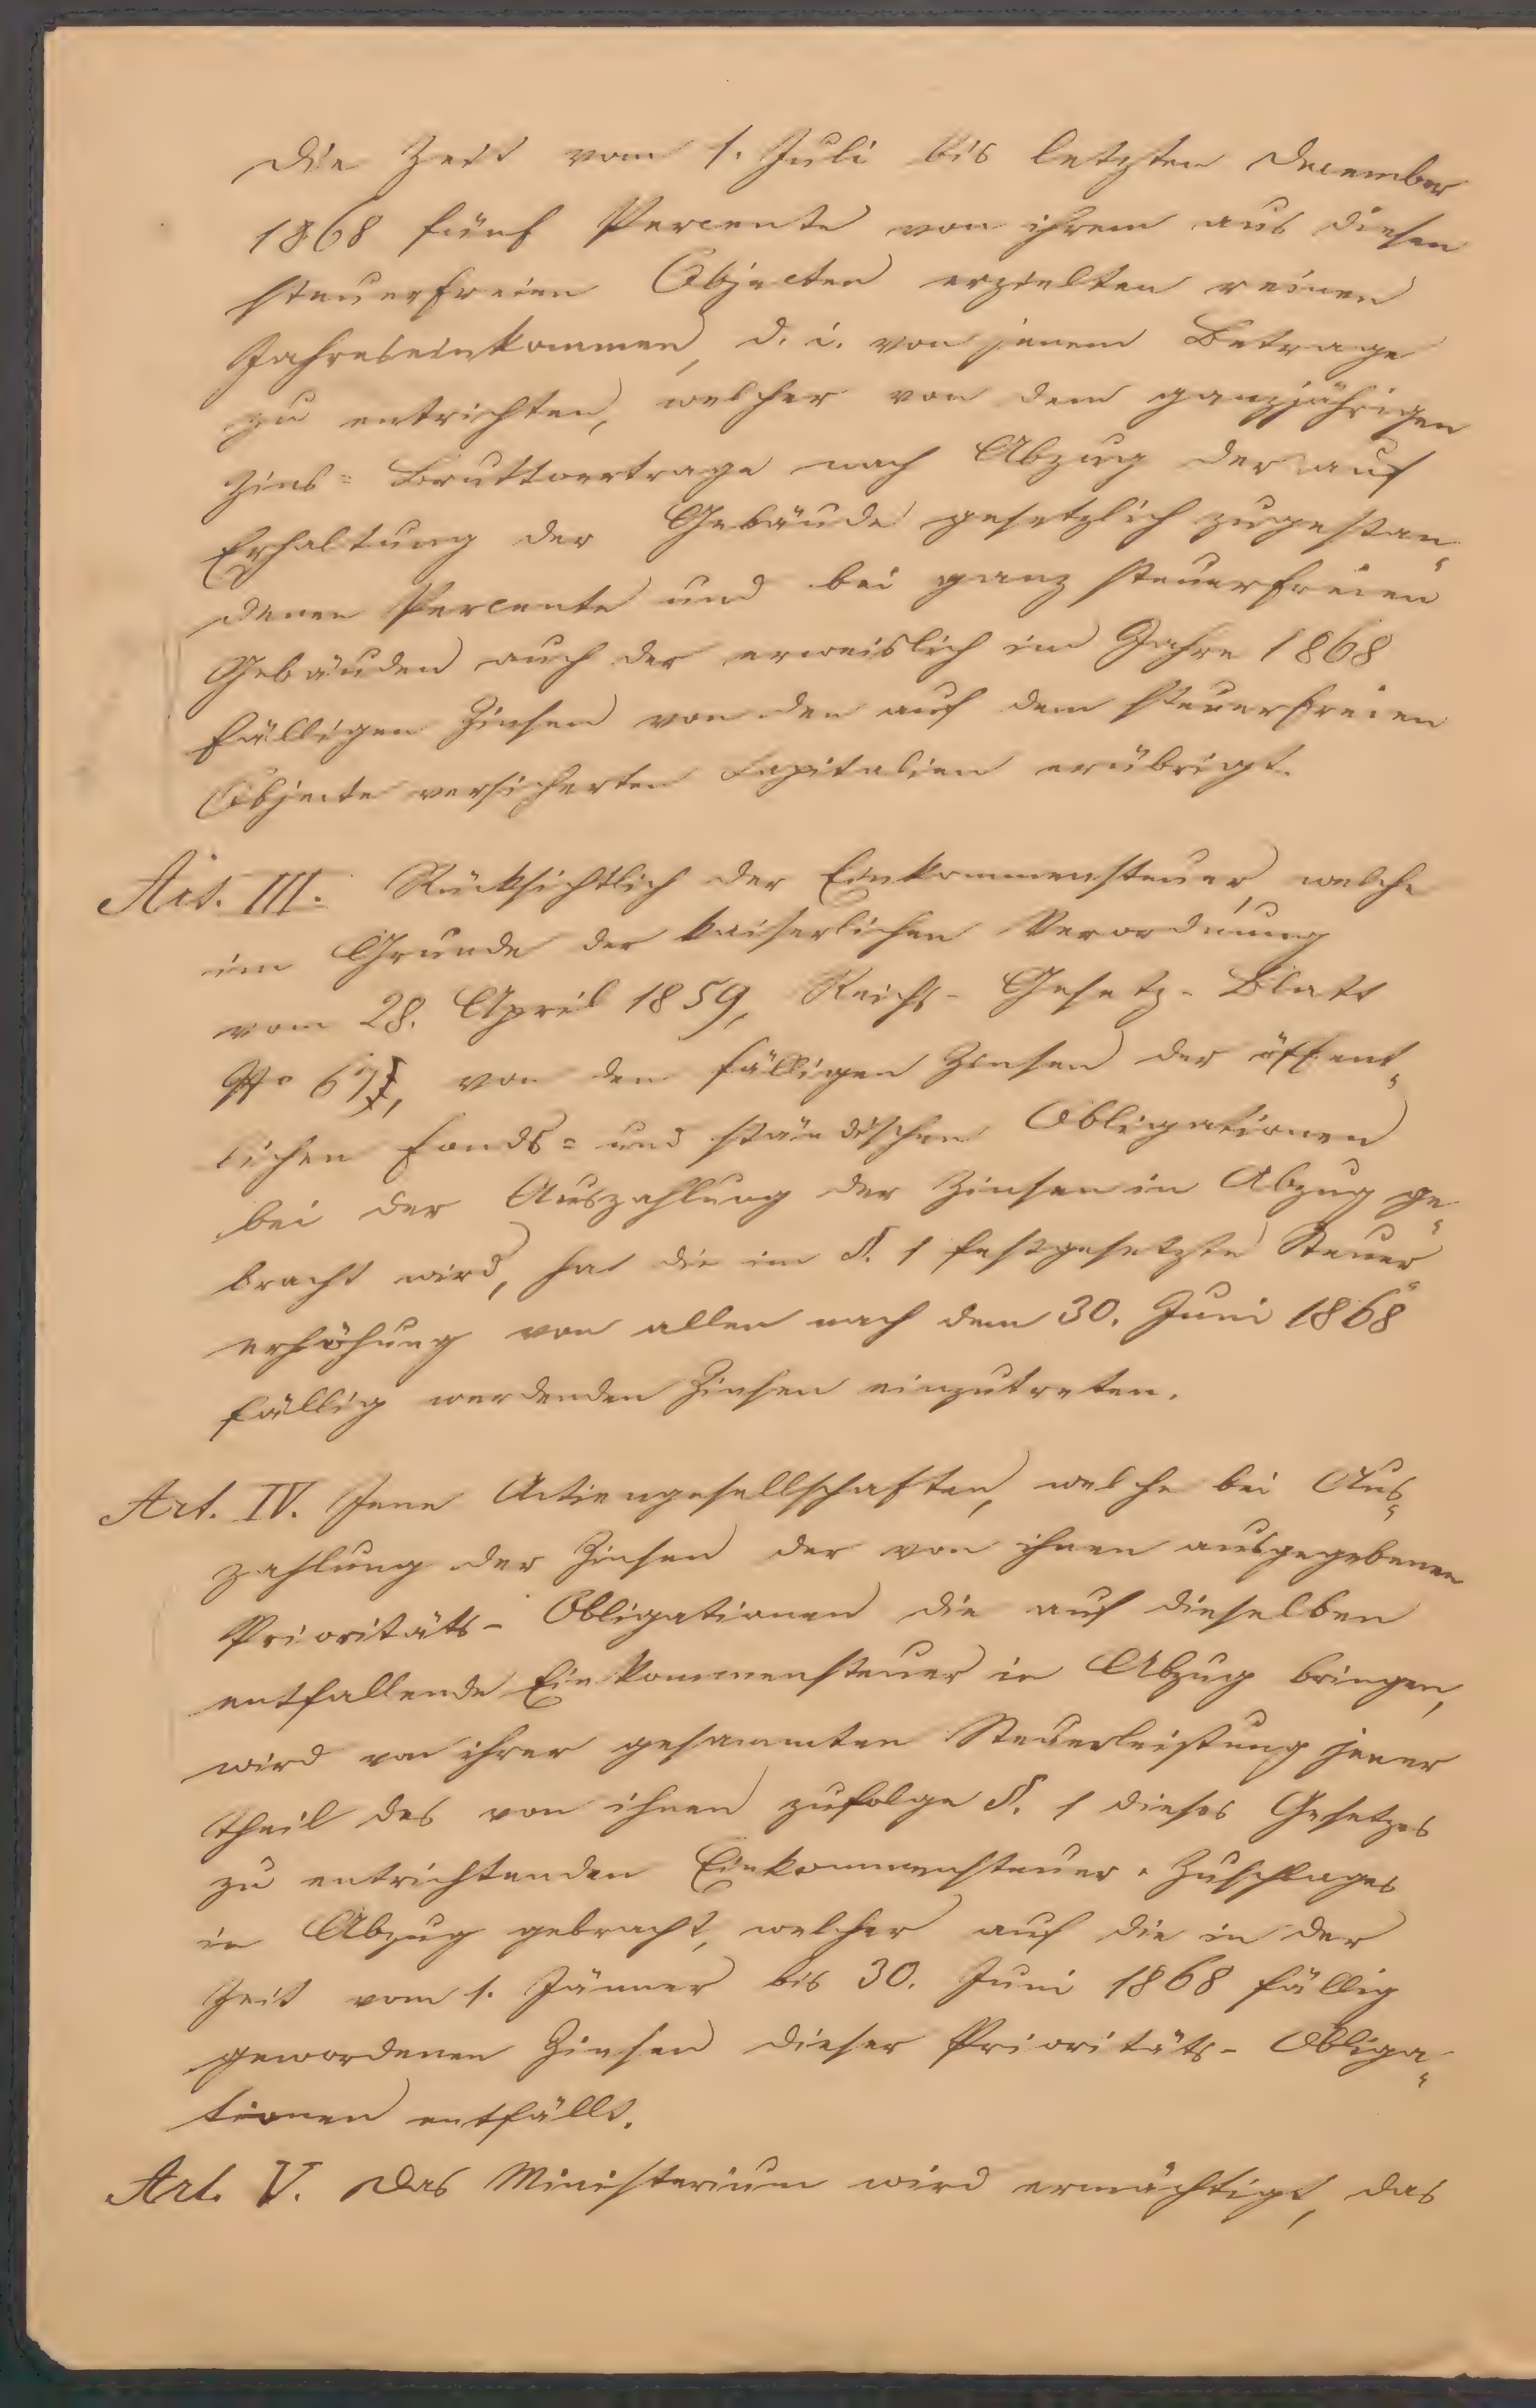 die Zeit vom 1. Juli bis letzten December
1868 fünf Percente von ihrem aus diesen
steuerfreien Objecten erzielten reinen
Jahreseinkommen, d. i. von jenem Betrage
zu entrichten, welcher von dem ganzjährigen
Zins= Bruttoertrage nach Abzug der auf
Erhaltung der Gebäude gesetzlich zugestan„
denen Percente und bei ganz steuerfreien
Gebäuden auch der erweislich im Jahre 1868
fälligen Zinsen von den auf dem steuerfreien
Objecte versicherten Capitalien erübrigt.
Art. III. Rücksichtlich der Einkommensteuer, welche
im Grunde der kaiserlichen Verordnung
vom 28. April 1859, Reichs- Gesetz- Blatt
No 67, von den fälligen Zinsen der öffent„
lichen Fonds= und ständischen Obligationen
bei der Auszahlung der Zinsen in Abzug ge„
bracht wird, hat die im §. 1 festgesetzte Steuer„
erhöhung von allen nach dem 30. Juni 1868
fällig werdenden Zinsen einzutreten.
Art. IV. Jene Actiengesellschaften, welche bei Aus„
zahlung der Zinsen der von ihnen ausgegebenen
Prioritäts- Obligationen die auf dieselben
entfallende Einkommensteuer in Abzug bringen,
wird von ihrer gesammten Steuerleistung jener
Theil des von ihnen zufolge §. 1 dieses Gesetzes
zu entrichtenden Einkommensteuer-Zuschlages
in Abzug gebracht, welcher auf die in der
Zeit vom 1. Jänner bis 30. Juni 1868 fällig
gewordenen Zinsen dieser Prioritäts- Obliga„
tionen entfällt.
Art. V. Das Ministerium wird ermächtigt, das